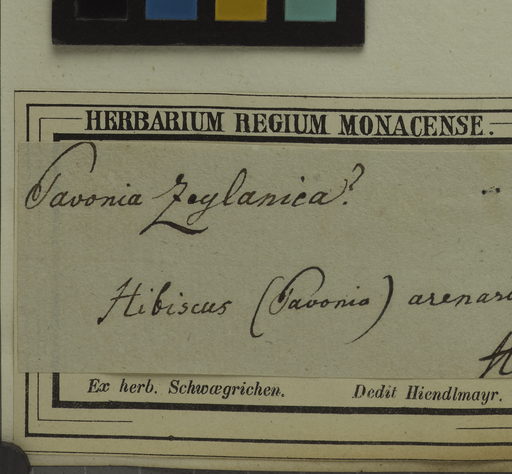 HERBARIUM REGIUM MONACENSE.
Pavonia Zeylanica?
Hibiscus (Pavonia)
Ex herb. Schwægrichen. Dedit Hiendlmayr.